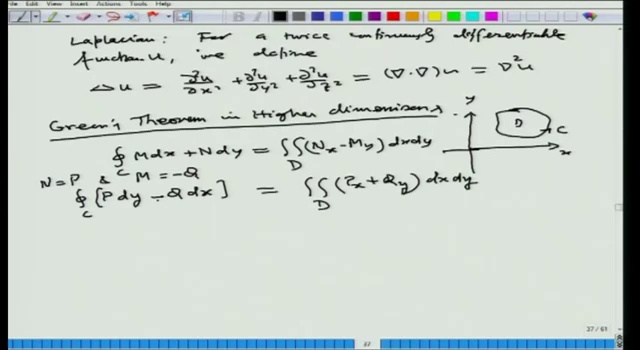 View Insert Actions Tools Help
Laplacian: For a twice continuously differentiable
function u, we define
Δu = ∂²u/∂x² + ∂²u/∂y² + ∂²u/∂z² = (∇·∇)u = ∇²u
Green's Theorem in Higher dimensions
y
D
C
x
∮_C Mdx + Ndy = ∬_D (N_x - M_y) dxdy
N = P & M = -Q
∮_C [P dy - Q dx] = ∬_D (P_x + Q_y) dxdy
37 / 61
37